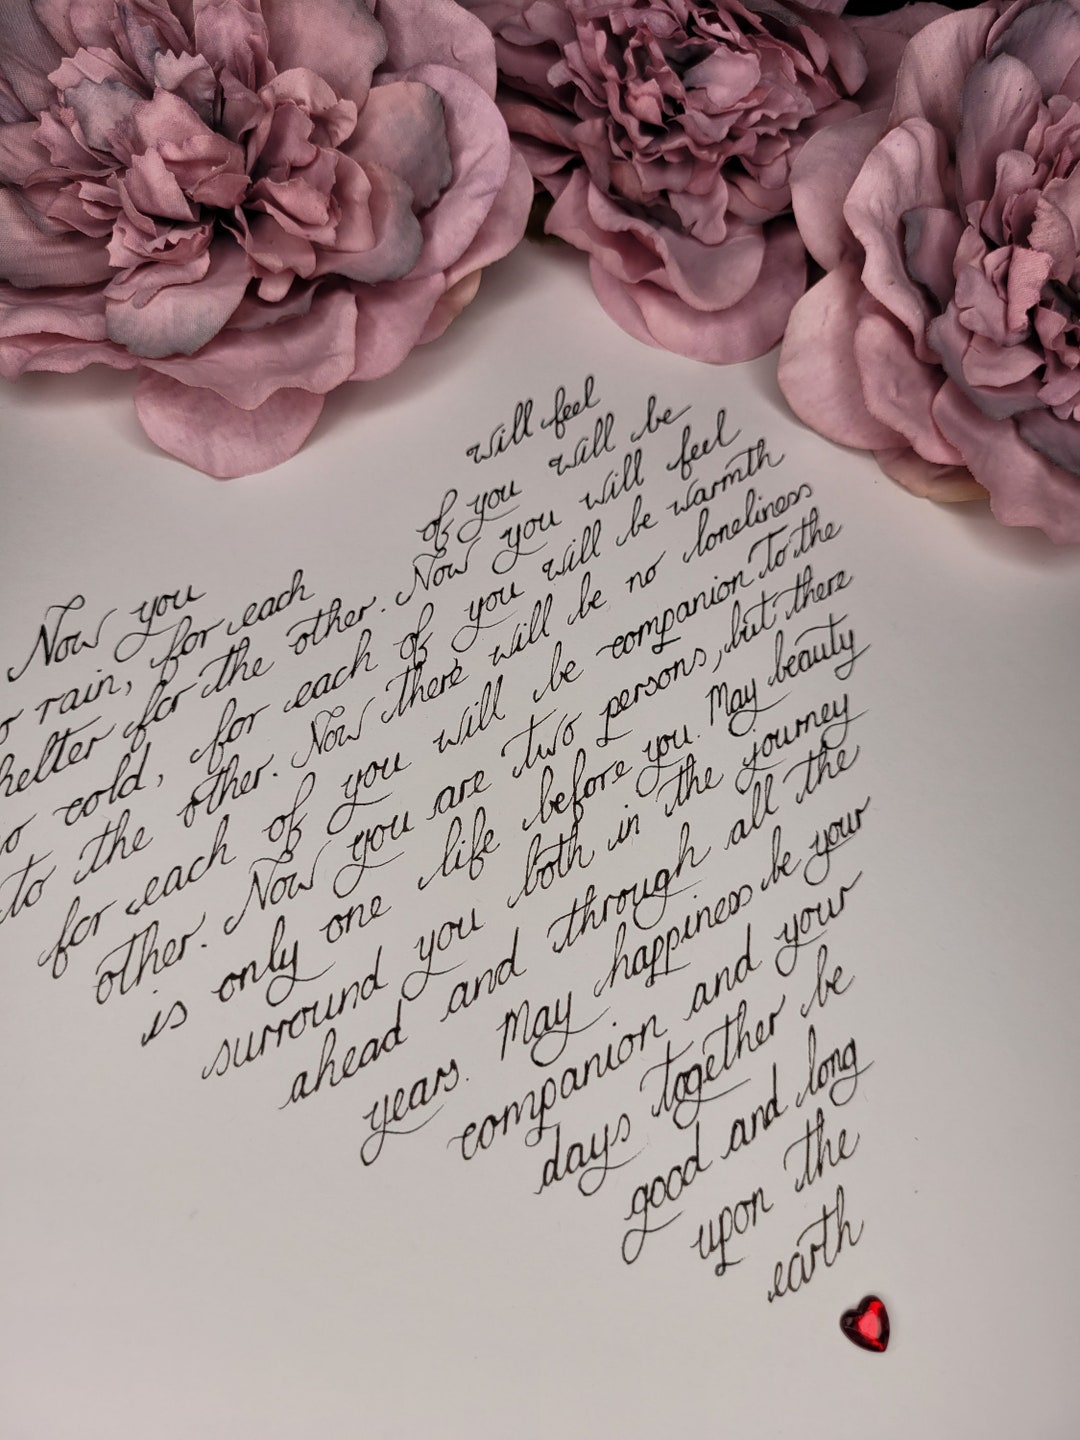 Now you will feel
o rain, for each of you will be
helter for the other. Now you will feel
o cold, for each of you will be warmth
to the other. Now there will be no loneliness
for each of you will be companion to the
other. Now you are two persons, but there
is only one life before you. May beauty
surround you both in the journey
ahead and through all the
years. May happiness be your
companion and your
days together be
good and long
upon the
earth